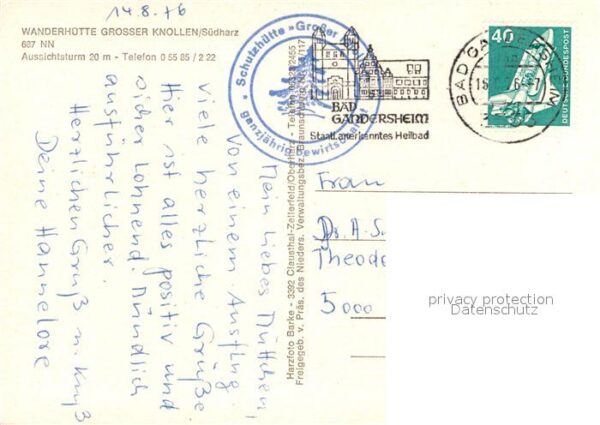 14.8.76
WANDERHÜTTE GROSSER KNOLLEN/Südharz
687 NN
Aussichtsturm 20 m - Telefon 0 55 85 / 2 22
Mein liebes Müttchen,
Von einem Ausflug
viele herzliche Grüße
Hier ist alles positiv und
sicher lohnend. Mündlich
ausführlicher.
Herzlichen Gruß u. Kuß
Deine Hannelore
Schutzhütte »Großer
ganzjährig bewirtschaftet
BAD
GANDERSHEIM
Staatl. anerkanntes Heilbad
BAD GANDERSHEIM
40
DEUTSCHE BUNDESPOST
Harzfoto Barke - 3392 Clausthal-Zellerfeld/Oberharz - Telefon
Freigegeb. v. Präs. des Nieders. Verwaltungsbez. Braunschweig
Frau
Dr. A. S
Theodo
5000
privacy protection
Datenschutz